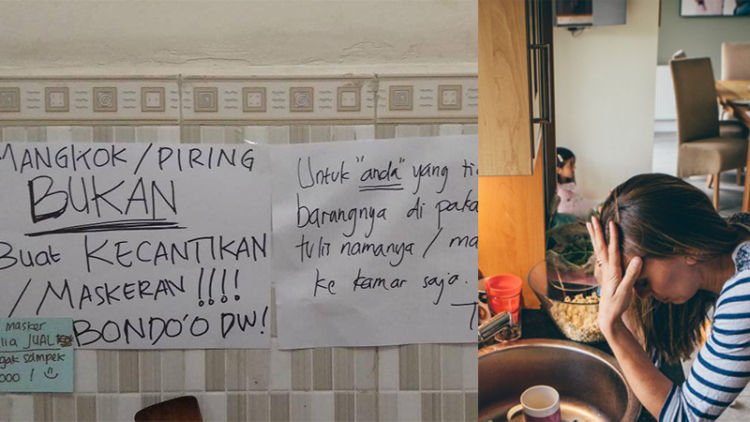 MANGKOK/PIRING
BUKAN
Buat KECANTIKAN
/MASKERAN !!!!
BONDO'O DW!
masker
JUAL
sampek
000 !
Untuk "anda" yang
barangnya di
tulis namanya /
ke kamar saja.